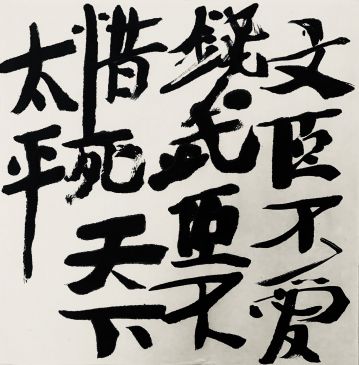 文臣不爱
钱武臣不
惜死天下
太平